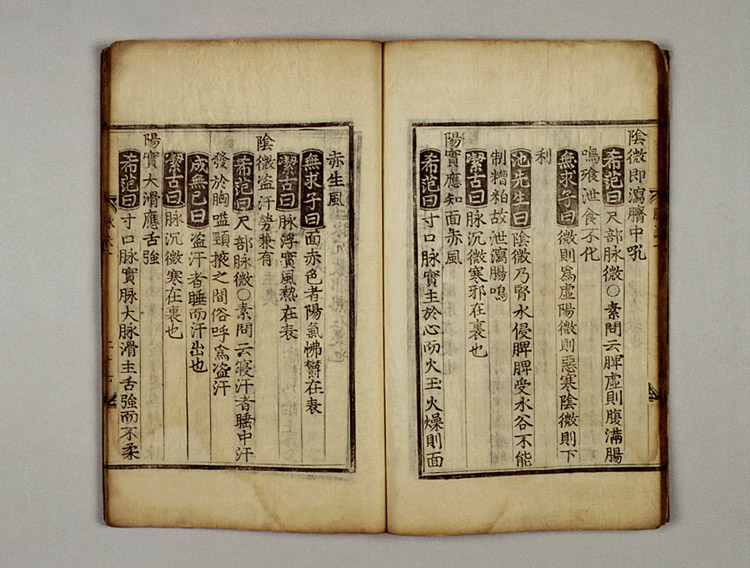 陰微即瀉臍中吼
希范曰尺部脉微○素問云脾虛則腹滿腸
鳴飱泄食不化
無求子曰微則爲虛陽微則惡寒陰微則下
利
池先生曰陰微乃腎水侵脾脾受水谷不能
制糟粕故泄瀉腸鳴
潔古曰脉沉微寒邪在裏也
陽實應知面赤風
希范曰寸口脉實主於心而火王火燥則面
赤生風
無求子曰面赤色者陽氣怫鬱在表
潔古曰脉浮實風熱在表
陰微盗汗勞兼有
希范曰尺部脉微○素問云寢汗者睡中汗
發於胸嗌頸掖之間俗呼爲盗汗
成無已曰盗汗者睡而汗出也
潔古曰脉沉微寒在裏也
陽實大滑應舌強
希范曰寸口脉實脉大脉滑主舌強而不柔